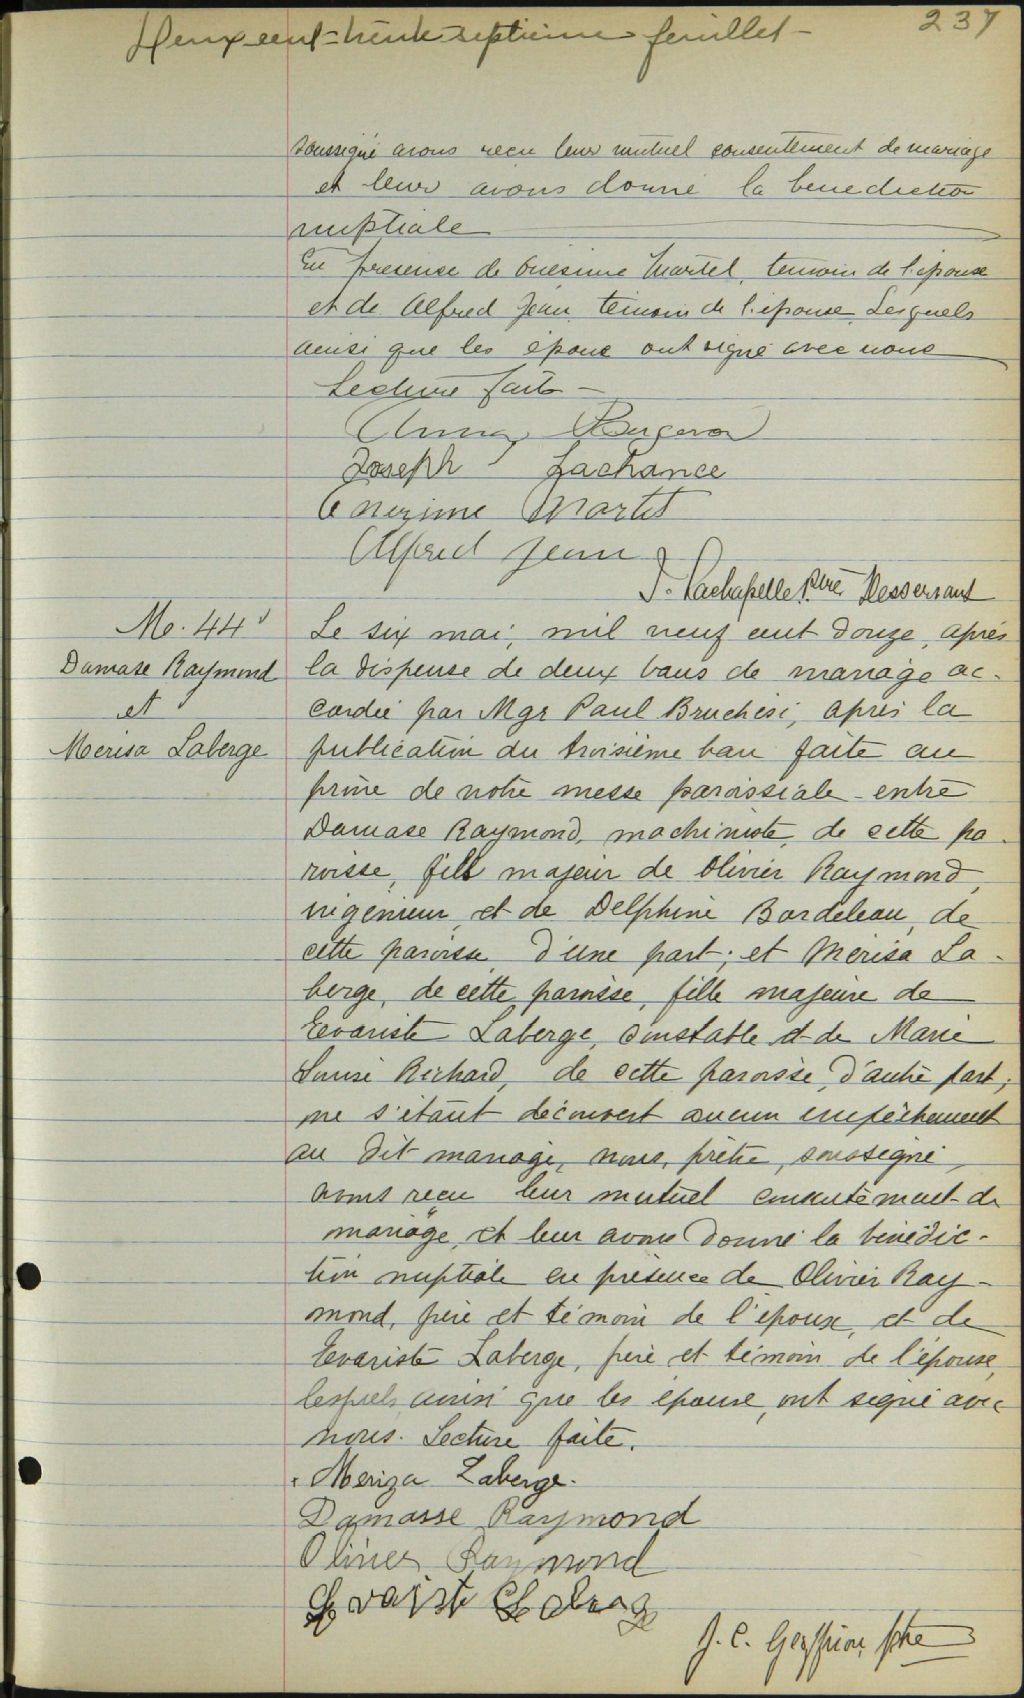 Deux cent-trente-septième feuillet - 237
soussigné avons recu leur mutuel consentement de mariage
et leur avons donné la benediction
nuptiale
En presense de Onésime Martel, temoin de l'épouse
et de Alfred Jean temoin de l'épouse Lesquels
ainsi que les époux ont signé avec nous
Lecture faite -
Anna Bergeron
Joseph Lachance
Onezime Martel
Alfred Jean
J. Lachapelle Ptre Desservant
M. 44
Damase Raymond
et
Merisa Laberge
Le six mai, mil neuf cent douze, après
la dispense de deux bans de mariage ac-
cordée par Mgr Paul Bruchési, après la
publication du troisième ban faite au
prône de notre messe paroissiale entre
Damase Raymond, machiniste, de cette pa-
roisse, fils majeur de Olivier Raymond,
ingénieur, et de Delphine Bordeleau, de
cette paroisse d'une part; et Mérisa La-
berge, de cette paroisse, fille majeure de
Evariste Laberge, constable et de Marie
Louise Richard, de cette paroisse, d'autre part;
ne s'étant découvert aucun empêchement
au dit mariage, nous, prêtre, soussigné,
avons reçu leur mutuel consentement de
mariage, et leur avons donné la bénédic-
tion nuptiale en présence de Olivier Ray-
mond, père et témoin de l'époux, et de
Evariste Laberge, père et témoin de l'épouse,
lesquels, ainsi que les époux, ont signé avec
nous. Lecture faite.
Meriza Laberge.
Damasse Raymond
Olivier Raymond
Evariste Laberge
J. C. Geoffrion, ptre